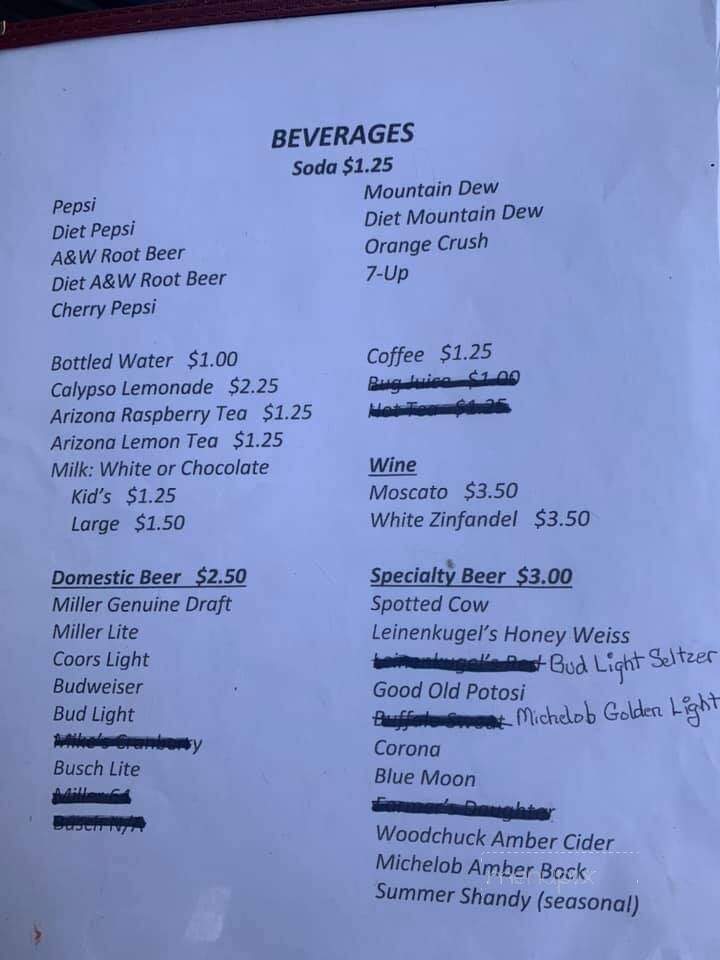 BEVERAGES
Soda $1.25
Pepsi
Diet Pepsi
A&W Root Beer
Diet A&W Root Beer
Cherry Pepsi
Mountain Dew
Diet Mountain Dew
Orange Crush
7-Up
Bottled Water $1.00
Calypso Lemonade $2.25
Arizona Raspberry Tea $1.25
Arizona Lemon Tea $1.25
Milk: White or Chocolate
Kid's $1.25
Large $1.50
Coffee $1.25
Bug Juice $1.00
Hot Tea $1.25
Wine
Moscato $3.50
White Zinfandel $3.50
Domestic Beer $2.50
Miller Genuine Draft
Miller Lite
Coors Light
Budweiser
Bud Light
Mike's Cranberry
Busch Lite
Miller 64
Busch N/A
Specialty Beer $3.00
Spotted Cow
Leinenkugel's Honey Weiss
Leinenkugel's Bud Light Seltzer
Good Old Potosi
Buffalo Sweat Michelob Golden Light
Corona
Blue Moon
Farmer's Daughter
Woodchuck Amber Cider
Michelob Amber Bock
Summer Shandy (seasonal)
menupix